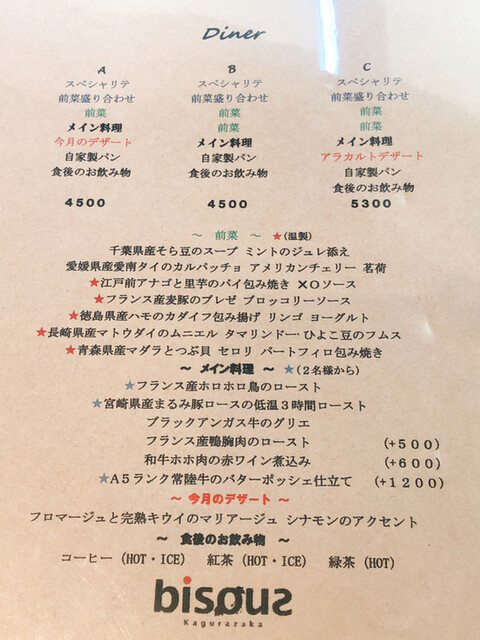 Diner
A
スペシャリテ
前菜盛り合わせ
前菜
メイン料理
今月のデザート
自家製パン
食後のお飲み物
4500
B
スペシャリテ
前菜盛り合わせ
前菜
前菜
メイン料理
自家製パン
食後のお飲み物
4500
C
スペシャリテ
前菜盛り合わせ
前菜
前菜
メイン料理
アラカルトデザート
自家製パン
食後のお飲み物
5300
～ 前菜 ～ ★(温製)
千葉県産そら豆のスープ ミントのジュレ添え
愛媛県産愛南タイのカルパッチョ アメリカンチェリー 茗荷
★江戸前アナゴと里芋のパイ包み焼き XOソース
★フランス産麦豚のブレゼ ブロッコリーソース
★徳島県産ハモのカダイフ包み揚げ リンゴ ヨーグルト
★長崎県産マトウダイのムニエル タマリンドー・ひよこ豆のフムス
★青森県産マダラとつぶ貝 セロリ パートフィロ包み焼き
～ メイン料理 ～ ★(2名様から)
★フランス産ホロホロ鳥のロースト
★宮崎県産まるみ豚ロースの低温3時間ロースト
ブラックアンガス牛のグリエ
フランス産鴨胸肉のロースト (+500)
和牛ホホ肉の赤ワイン煮込み (+600)
★A5ランク常陸牛のバターポッシェ仕立て (+1200)
～ 今月のデザート ～
フロマージュと完熟キウイのマリアージュ シナモンのアクセント
～ 食後のお飲み物 ～
コーヒー (HOT・ICE) 紅茶 (HOT・ICE) 緑茶 (HOT)
bisous
Kagurazaka